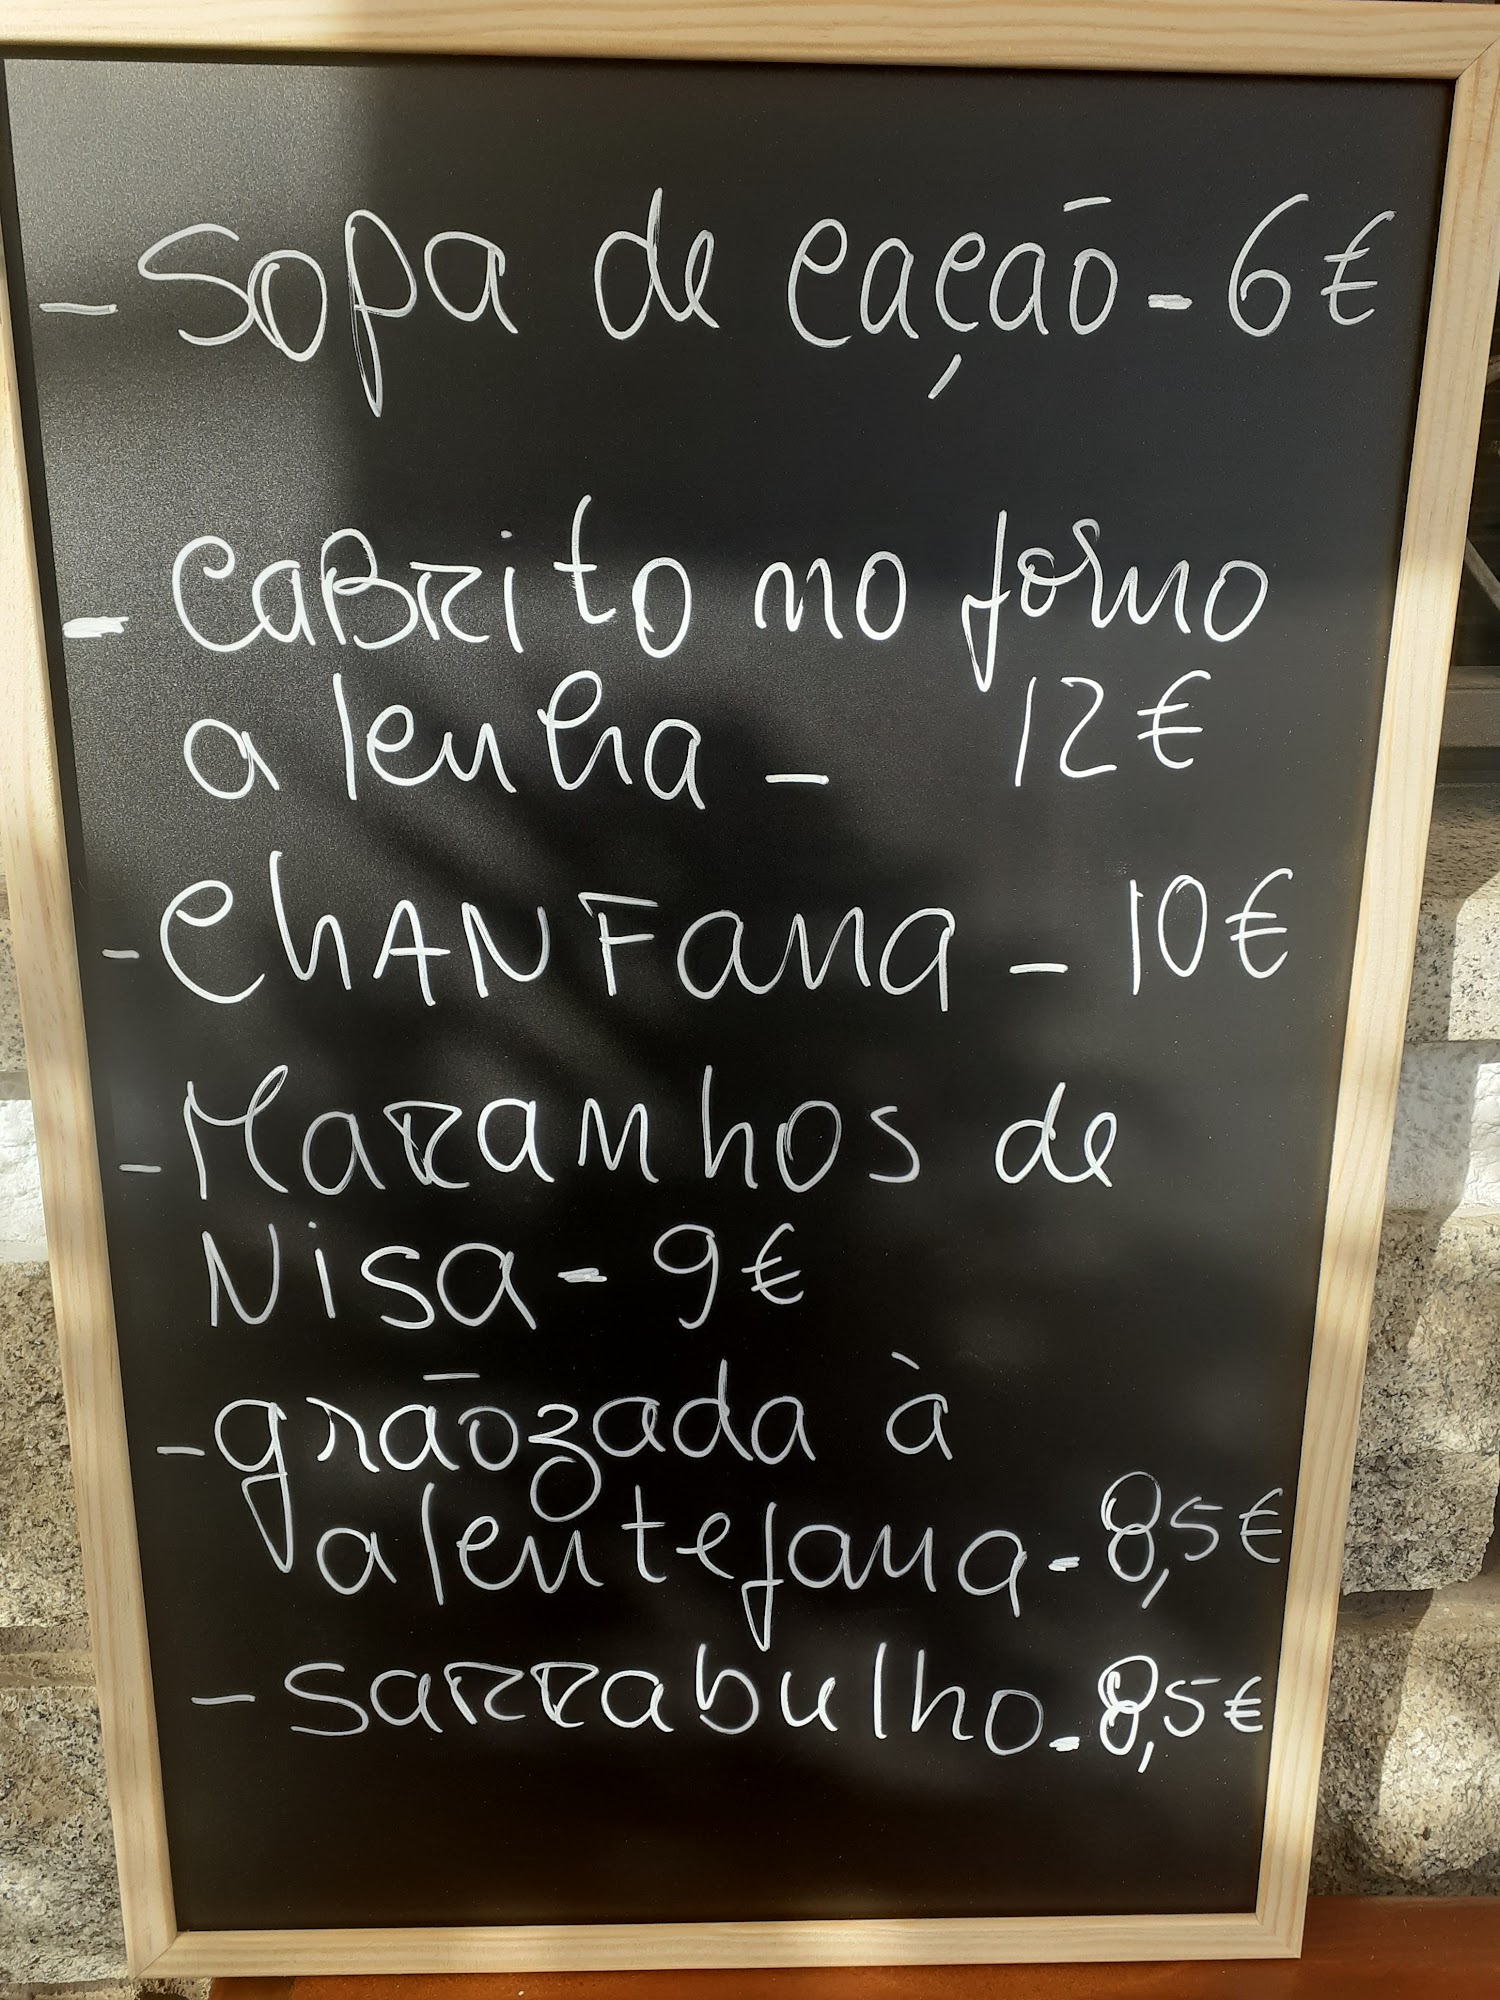 - Sopa de cação - 6€
- CaBRito no forno
a lenha - 12€
- ChANFana - 10€
- Maranhos de
Nisa - 9€
- grãozada à
alentejana - 8,5€
- Sarrabulho - 8,5€